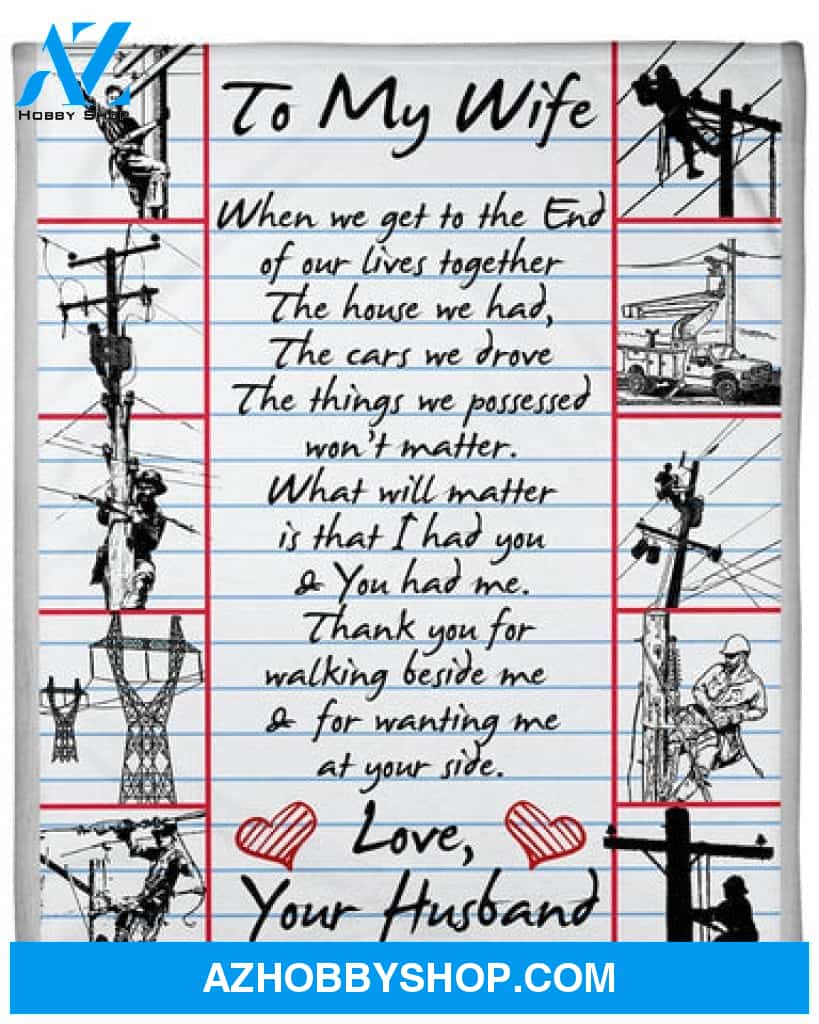 AZ
HOBBY SHOP
To My Wife
When we get to the End
of our lives together
The house we had,
The cars we drove
The things we possessed
won't matter.
What will matter
is that I had you
& You had me.
Thank you for
walking beside me
& for wanting me
at your side.
Love,
Your Husband
AZHOBBYSHOP.COM